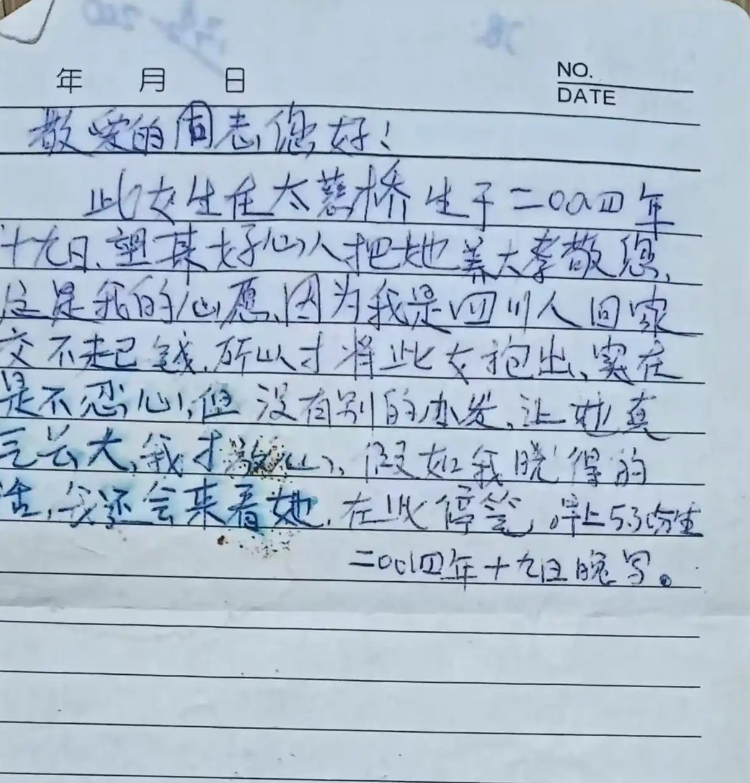 年 月 日 NO.
DATE
敬爱的同志,您好!
此女生在太慈桥生于二〇〇四年
十九日、望某好心人把她养大孝敬您,
这是我的心愿,因为我是四川人回家
交不起钱,所以才将此女抱出、实在
是不忍心,但没有别的办法,让她真
长大,我才放心、假如我晓得的
话,我还会来看她,在此停笔,晚上5.30分生
二〇〇四年十九日晚写。